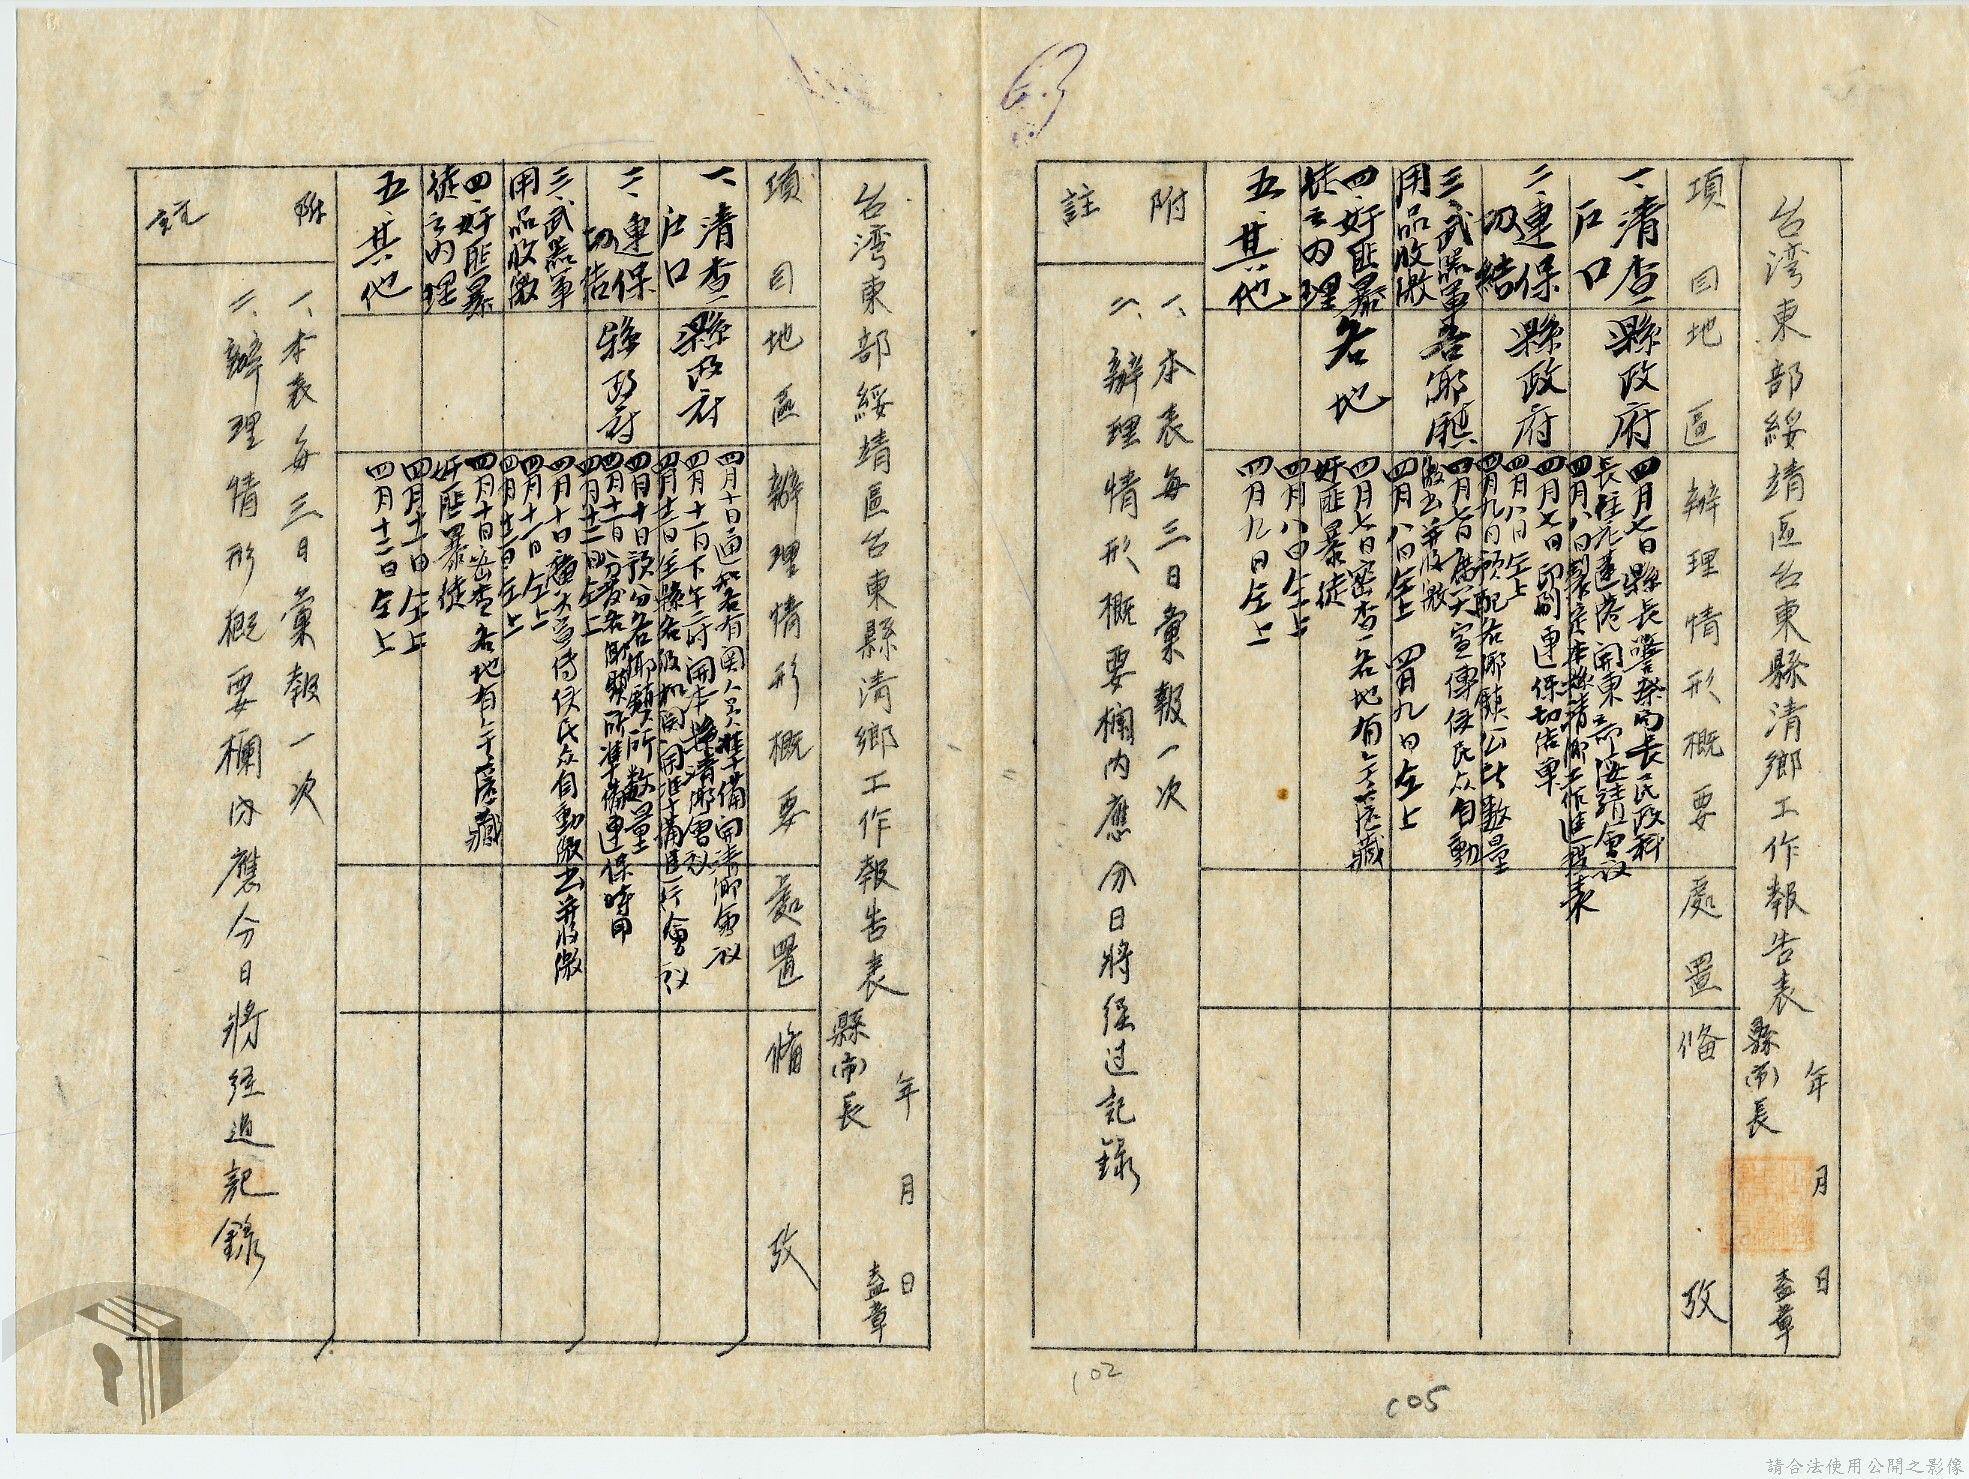 台湾東部綏靖區台東縣清鄉工作報告表
縣(市)長
年 月 日
盖章
項目
地區
辦理情形概要
處置
俻攷
一、清查
户口
縣政府
四月七日縣長警察局長民政科
長往花蓮港開東部綏靖會议
四月八日製定本縣清鄉工作進度表
二、連保
切結
縣政府
四月七日印刷連保切结单
四月八日仝上
四月九日预配各鄉鎮公所数量
三、武器軍
用品收繳
各鄉鎮
四月七日廣大宣傳使民众自動
繳出并收繳
四月八日仝上 四月九日仝上
四、奸匪暴
徒之办理
各地
四月七日密查各地有无隱藏
奸匪暴徒
四月八日仝上
五、其他
四月九日仝上
附註
一、本表每三日彙報一次
二、辦理情形概要欄内應分日將经过記錄
102
105
台湾東部綏靖區台東縣清鄉工作報告表
縣(市)長
年 月 日
盖章
項目
地區
辦理情形概要
處置
俻攷
一、清查
户口
縣政府
四月十日通知各有関人員準備開清鄉會议
四月十一日下午二时開本縣清鄉會议
四月十二日全縣各级机関開進行會议
二、連保
切结
縣政府
四月十日预分各鄉鎮所数量
四月十一日分發各鄉鎮所準備連保時用
四月十二日仝上
三、武器軍
用品收繳
四月十日廣大宣传使民众自動繳出并收繳
四月十一日仝上
四月十二日仝上
四、奸匪暴
徒之办理
四月十日密查各地有无隱藏
奸匪暴徒
四月十一日仝上
五、其他
四月十二日仝上
附註
一、本表每三日彙報一次
二、辦理情形概要欄内應分日將经过記錄
請合法使用公開之影像